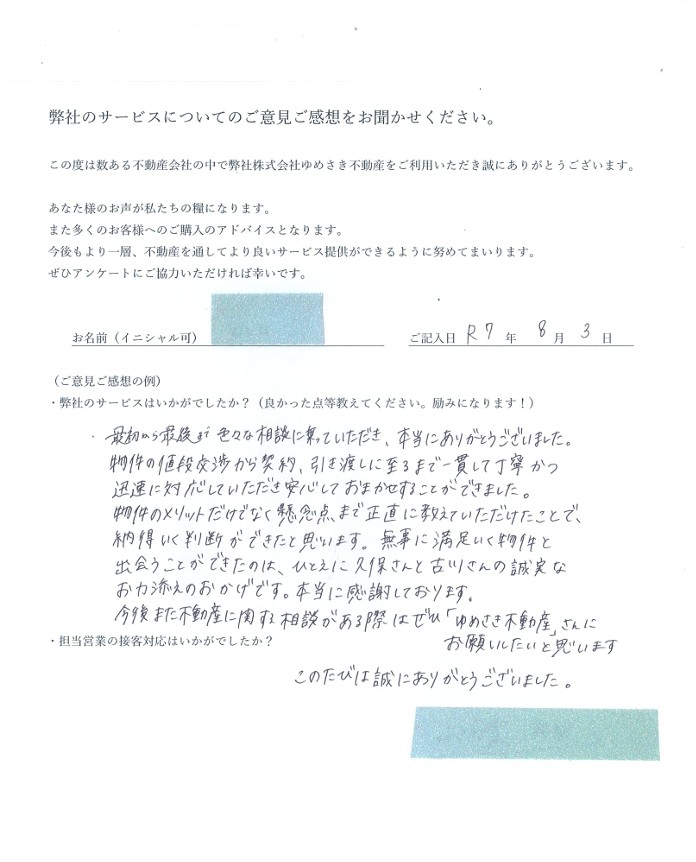 弊社のサービスについてのご意見ご感想をお聞かせください。
この度は数ある不動産会社の中で弊社株式会社ゆめさき不動産をご利用いただき誠にありがとうございます。
あなた様のお声が私たちの糧になります。
また多くのお客様へのご購入のアドバイスとなります。
今後もより一層、不動産を通してより良いサービス提供ができるように努めてまいります。
ぜひアンケートにご協力いただければ幸いです。
お名前（イニシャル可） ご記入日 R7 年 8 月 3 日
（ご意見ご感想の例）
・弊社のサービスはいかがでしたか？（良かった点等教えてください。励みになります！）
・最初から最後まで色々な相談に乗っていただき、本当にありがとうございました。
物件の値段交渉から契約、引き渡しに至るまで一貫して丁寧かつ
迅速に対応していただき安心しておまかせすることができました。
物件のメリットだけでなく懸念点まで正直に教えていただけたことで、
納得いく判断ができたと思います。無事に満足いく物件と
出会うことができたのは、ひとえに久保さんと古川さんの誠実な
お力添えのおかげです。本当に感謝しております。
今後また不動産に関する相談がある際はぜひ「ゆめさき不動産」さんに
お願いしたいと思います
・担当営業の接客対応はいかがでしたか？
このたびは誠にありがとうございました。